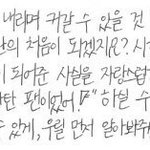 내리며 커갈 수 있을 것
의 처음이 되겠지요? 사
이 되어준 사실을 자랑스럽
팬이었어!" 하실 수
있게, 우릴 먼저 알아봐